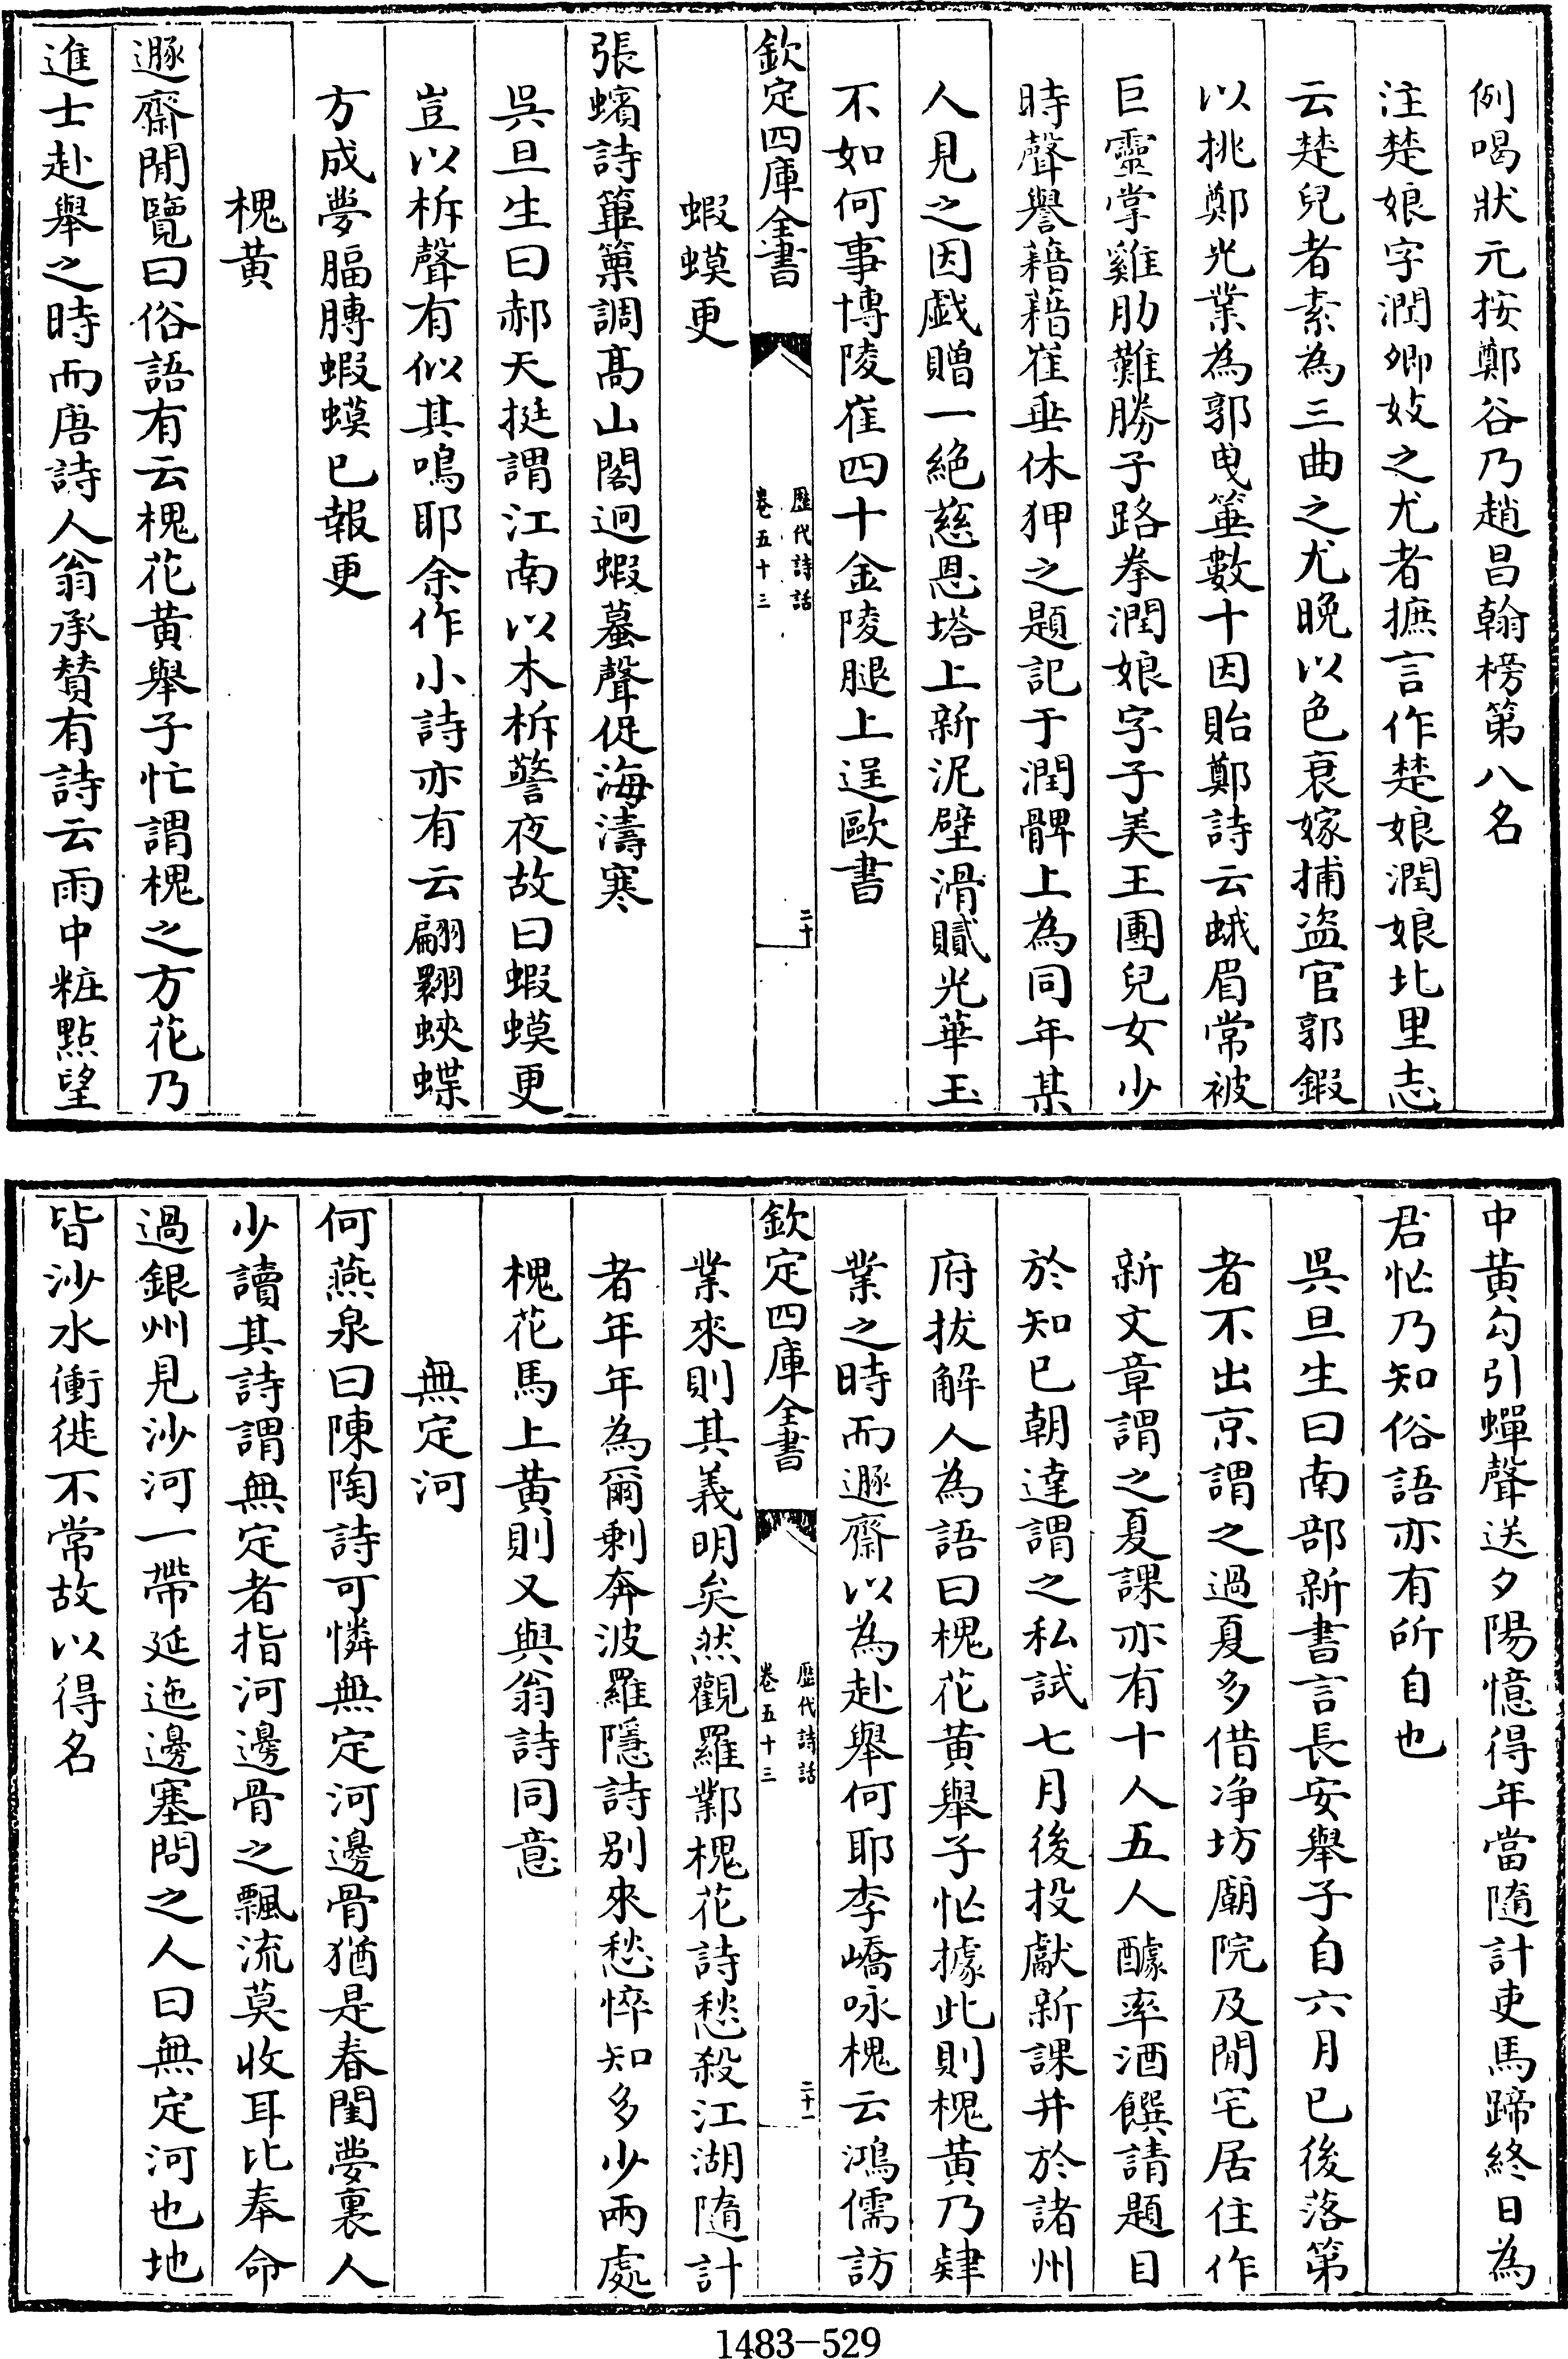 例喝狀元按鄭谷乃趙昌翰榜第八名
注楚娘字潤卿妓之尤者摭言作楚娘潤娘北里志
云楚兒者素為三曲之尤晚以色衰嫁捕盜官郭鍜
以挑鄭光業為郭曳箠數十因貽鄭詩云蛾眉常被
巨靈掌雞肋難勝子路拳潤娘字子美王團兒女少
時聲譽藉藉崔垂休狎之題記于潤髀上為同年某
人見之因戱贈一絶慈恩塔上新泥壁滑膩光華玉
不如何事博陵崔四十金陵腿上逞歐書
欽定四庫全書
歷代詩話
卷五十三
二十
蝦蟆更
張蠙詩篳篥調髙山閣迥蝦蟇聲促海濤寒
吳旦生曰郝天挺謂江南以木柝警夜故曰蝦蟆更
豈以柝聲有似其鳴耶余作小詩亦有云翩翾蛺蝶
方成夢腷膊蝦蟆已報更
槐黃
遯齋閒覽曰俗語有云槐花黃舉子忙謂槐之方花乃
進士赴舉之時而唐詩人翁承賛有詩云雨中粧點望
中黃勾引蟬聲送夕陽憶得年當隨計吏馬蹄終日為
君忙乃知俗語亦有所自也
吳旦生曰南部新書言長安舉子自六月已後落第
者不出京謂之過夏多借净坊廟院及閒宅居住作
新文章謂之夏課亦有十人五人醵率酒饌請題目
於知已朝達謂之私試七月後投獻新課并於諸州
府拔解人為語曰槐花黃舉子忙據此則槐黃乃肄
業之時而遯齋以為赴舉何耶李嶠咏槐云鴻儒訪
欽定四庫全書
歷代詩話
卷五十三
二十一
業來則其義明矣然觀羅鄴槐花詩愁殺江湖隨計
者年年為爾剰奔波羅隱詩别來愁悴知多少兩處
槐花馬上黃則又與翁詩同意
無定河
何燕泉曰陳陶詩可憐無定河邊骨猶是春閨夢裏人
少讀其詩謂無定者指河邊骨之飄流莫收耳比奉命
過銀州見沙河一帶延迤邊塞問之人曰無定河也地
皆沙水衝徙不常故以得名
1483-529